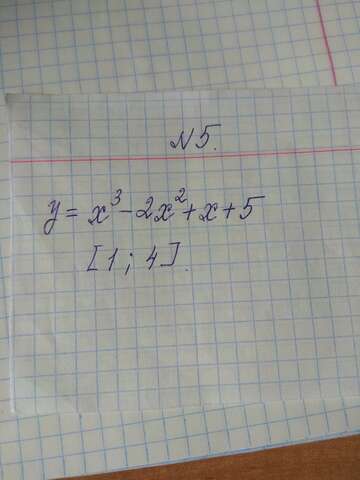 N5.
y = x³ - 2x² + x + 5
[1; 4].